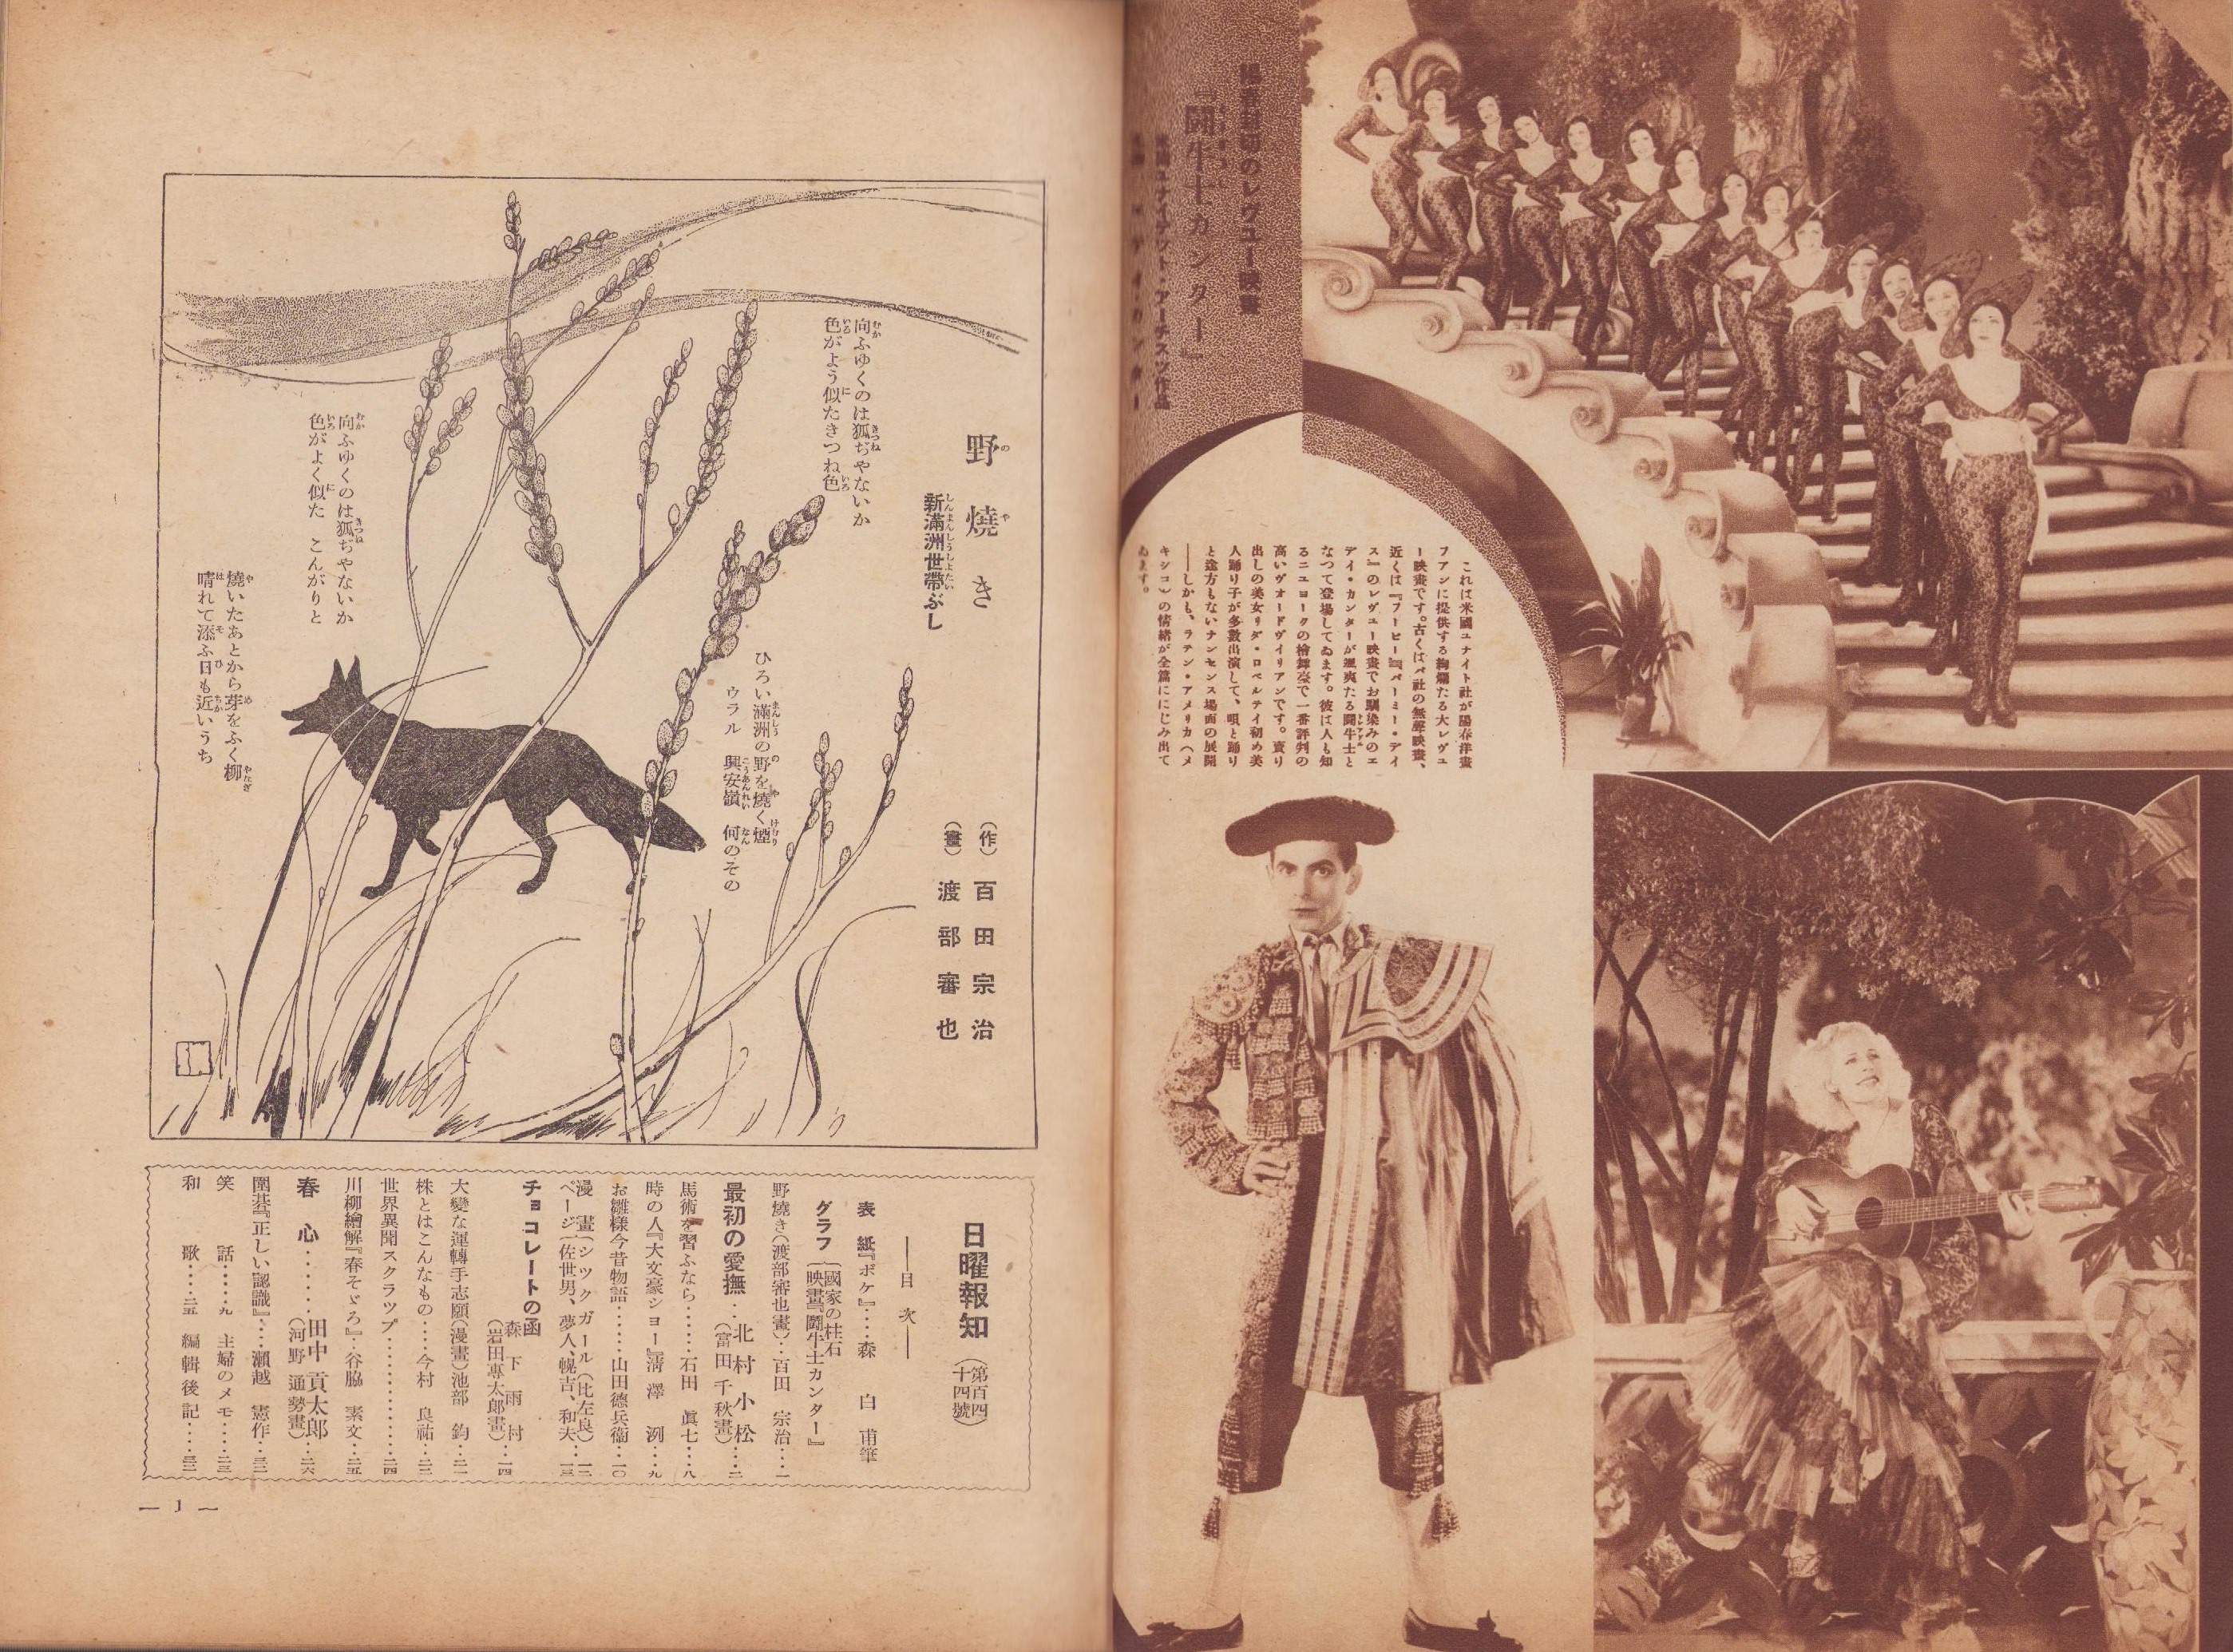 陽春封切のレヴュー映畫
『闘牛士カンター』
米國ユナイテット・アーチスツ作品
これは米國ユナイト社が陽春洋畫
フアンに提供する絢爛たる大レヴュ
ー映畫です。古くはパ社の無聲映畫、
近くは『フーピー』『パーミー・デイ
ス』のレヴュー映畫でお馴染みのエ
デイ・カンターが颯爽たる闘牛士と
なつて登場してゐます。彼は人も知
るニユヨークの檜舞臺で一番評判の
高いヴオードヴイリアンです。賣り
出しの美女リダ・ロベルテイ初め美
人踊り子が多數出演して、唄と踊り
と途方もないナンセンス場面の展開
――しかも、ラテン・アメリカ(メ
キシコ)の情緒が全篇ににじみ出て
ゐます。
野燒き
新滿洲世帶ぶし
(作) 百田宗治
(畫) 渡部審也
向ふゆくのは狐ぢやないか
色がよう似たきつね色
ひろい滿洲の野を燒く煙
ウラル 興安嶺 何のその
向ふゆくのは狐ぢやないか
色がよく似た こんがりと
燒いたあとから芽をふく柳
晴れて添ふ日も近いうち
日曜報知 (第百四十四號)
――目次――
表紙『ボケ』……森 白甫筆
グラフ{國家の柱石
映畫『闘牛士カンター』
野燒き(渡部審也畫)…百田 宗治…一
最初の愛撫…北村小松…二
(富田千秋畫)
馬術を習ふなら……石田 眞七…八
時の人『大文豪ショー』淸澤 洌…九
お雛樣今昔物語……山田德兵衞…一〇
漫畫{シツクガール(比左良)…一二
ページ{佐世男、夢人、幌吉、和夫…一三
チョコレートの函
森下雨村…一四
(岩田專太郎畫)
大變な運轉手志願(漫畫)池部 鈞…二一
株とはこんなもの……今村 良祐…二三
世界異聞スクラツプ……………二四
川柳繪解『春そゞろ』…谷脇 素文…二五
春心……田中貢太郎…二六
(河野通勢畫)
圍碁『正しい認識』…瀨越 憲作…三二
笑話……九 主婦のメモ……二三
和歌……二五 編輯後記……三二
― 1 ―